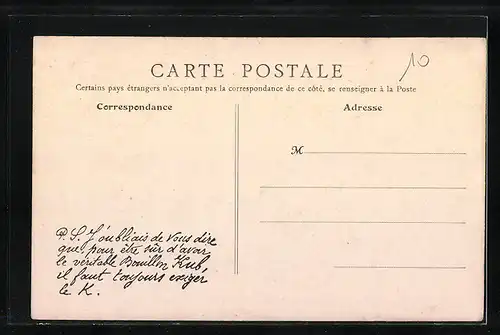 10
CARTE POSTALE
Certains pays étrangers n'acceptant pas la correspondance de ce côté, se renseigner à la Poste
Correspondance
Adresse
M
P.S. J'oubliais de vous dire
que pour être sûr d'avoir
le véritable Bouillon Kub,
il faut toujours exiger
le K.